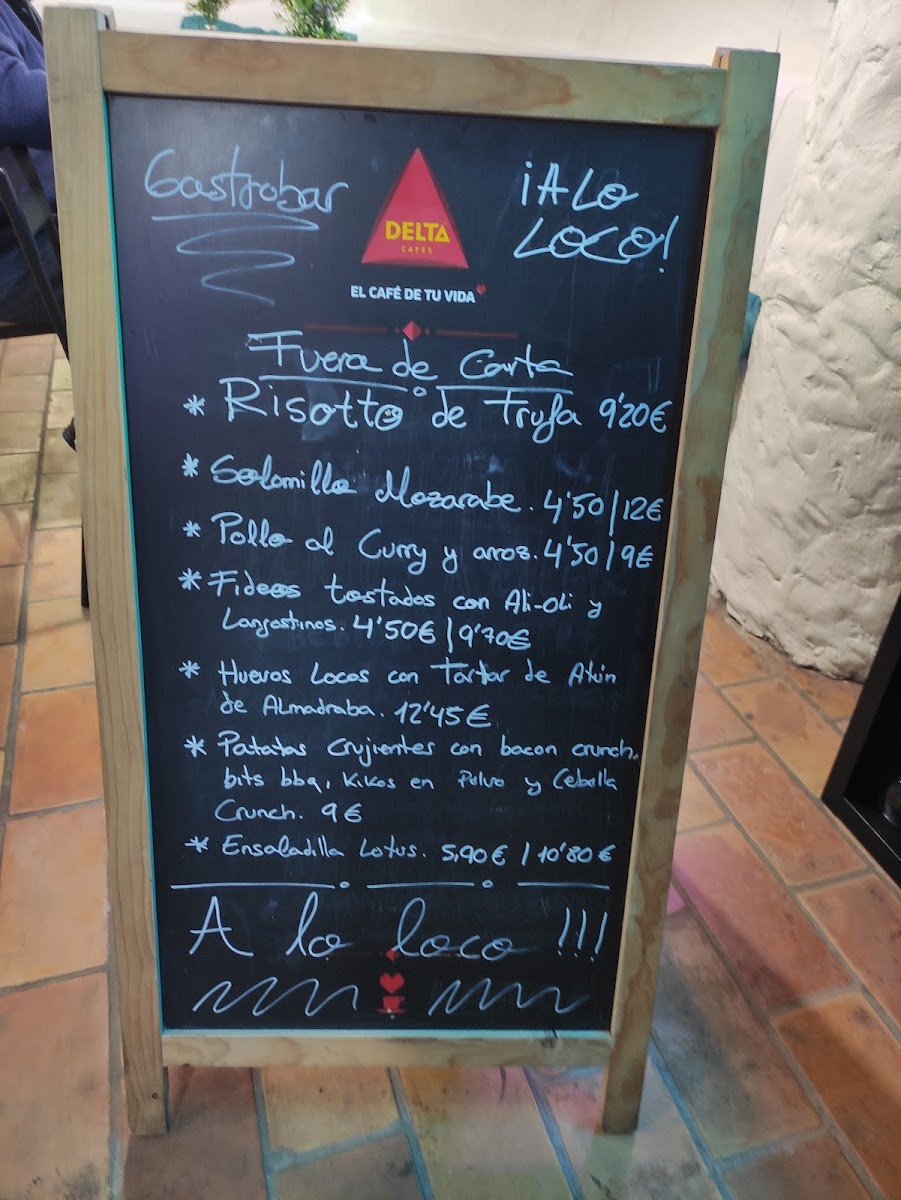 Gastrobar
¡A Lo
Loco!
DELTA
CAFES
EL CAFÉ DE TU VIDA
Fuera de Carta
* Risotto de Trufa 9'20€
* Solomillo Mozarabe. 4'50/12€
* Pollo al Curry y arros. 4'50/9€
* Fideos tostados con Ali-oli y
Langostinos. 4'50€/9'70€
* Huevos Locos con Tartar de Atún
de Almadraba. 12'45€
* Patatas crujientes con bacon crunch,
bits bbq, Kikos en Polvo y Cebolla
Crunch. 9€
* Ensaladilla Lotus. 5,90€ / 10'80€
A lo loco !!!